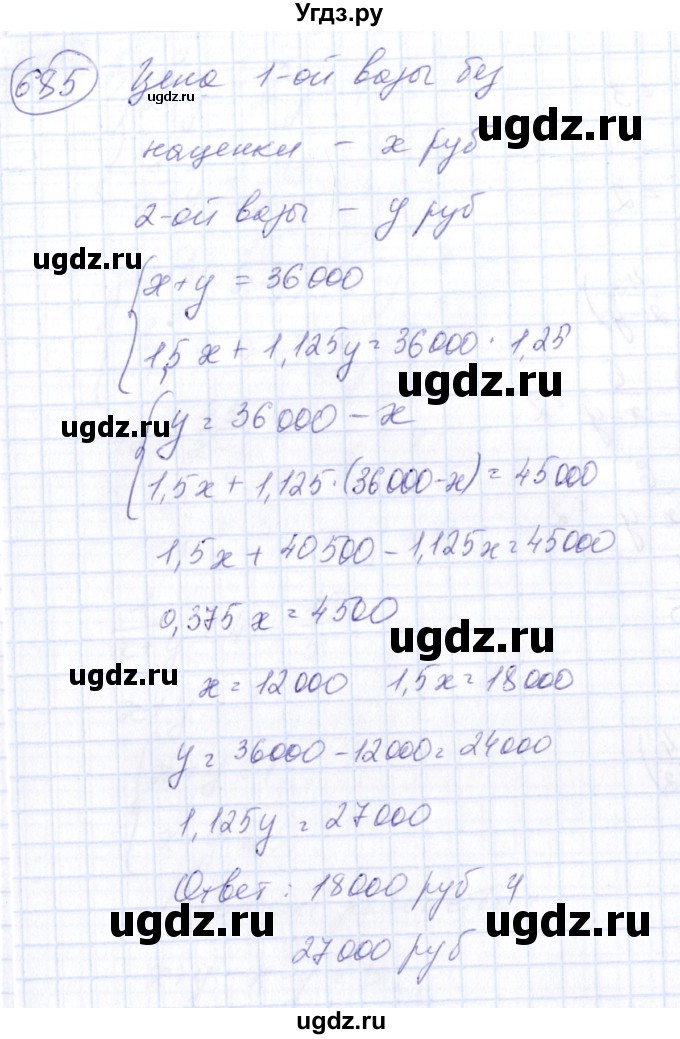 Угдз.ру
685 Цена 1-ой вазы без
ugdz.ru
ugdz.ru
наценки – x руб
2-ой вазы – y руб
ugdz.ru
x+y = 36000
1,5x + 1,125y = 36000 · 1,25
ugdz.ru
ugdz.ru
y = 36000 – x
1,5x + 1,125·(36000-x) = 45000
1,5x + 40500 – 1,125x = 45000
0,375x = 4500
ugdz.ru
ugdz.ru
x = 12000 1,5x = 18000
y = 36000 – 12000 = 24000
1,125y = 27000
Ответ: 18000 руб и
ugdz.ru
ugdz.ru
27000 руб
ugdz.ru